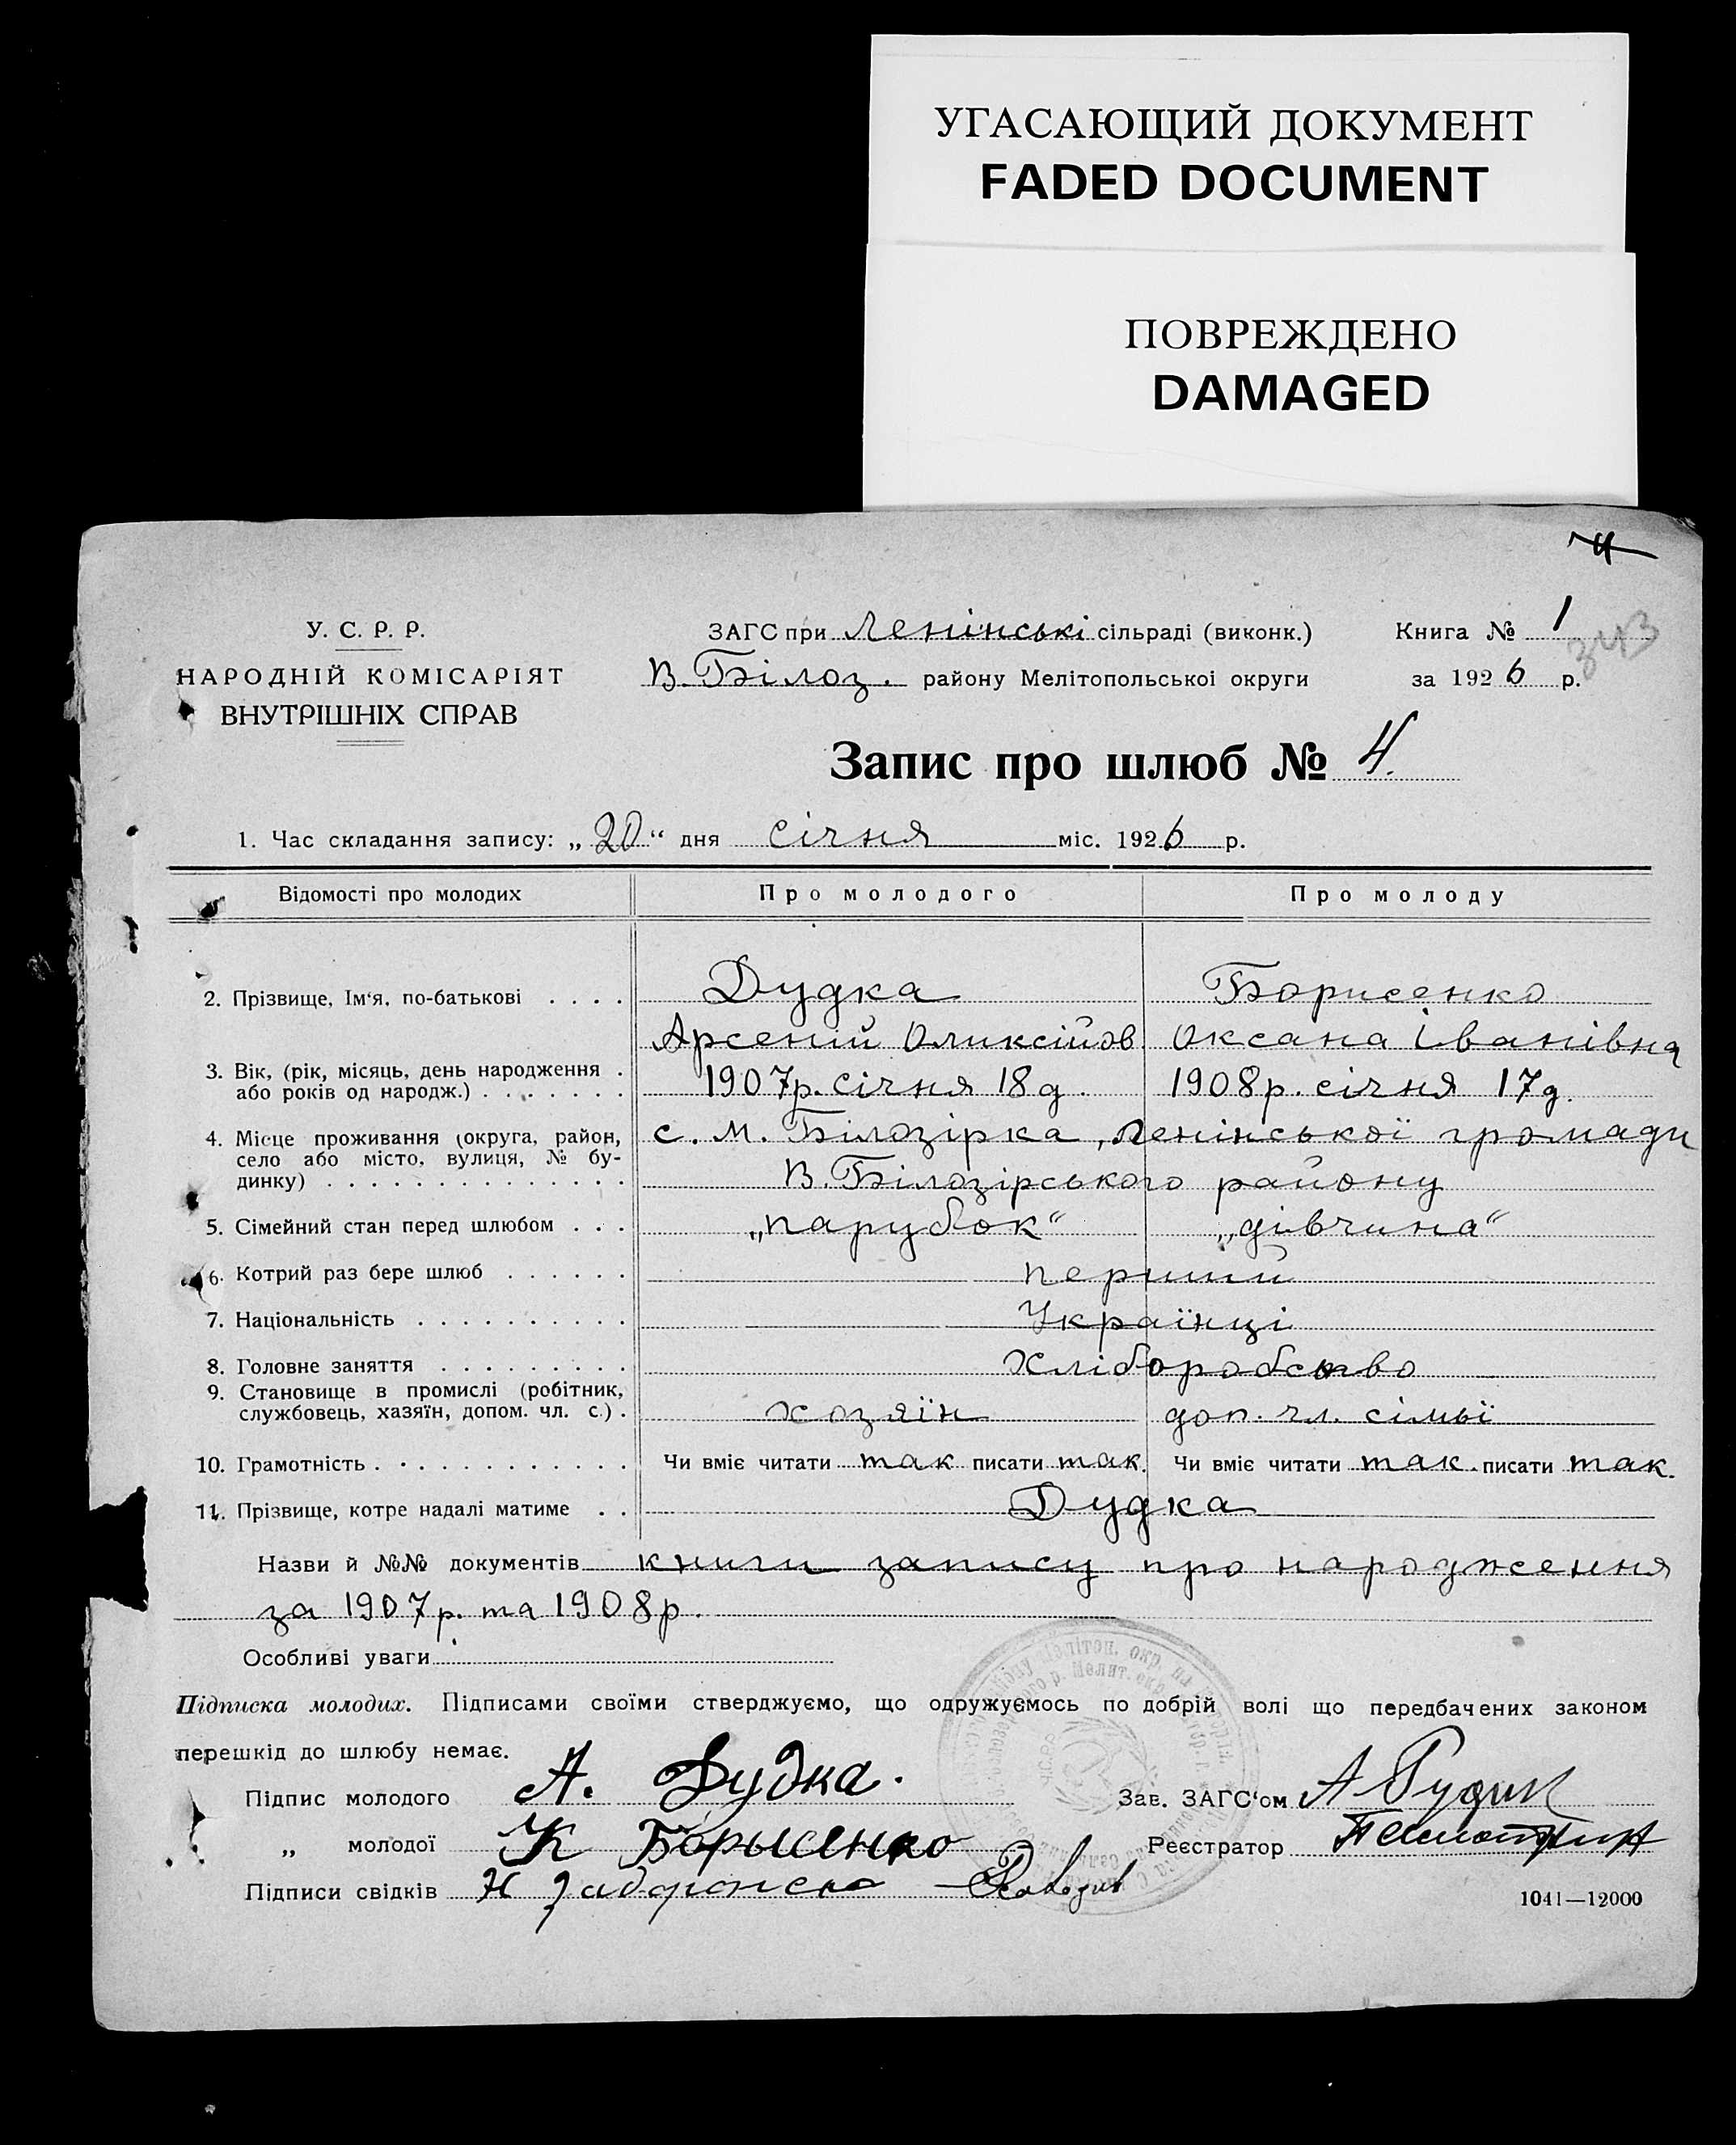 УГАСАЮЩИЙ ДОКУМЕНТ
FADED DOCUMENT
ПОВРЕЖДЕНО
DAMAGED
4
У. С. Р. Р.
НАРОДНІЙ КОМІСАРІЯТ
ВНУТРІШНІХ СПРАВ
ЗАГС при Ленінські сільраді (виконк.)
В. Білоз. району Мелітопольськоі округи
Книга № 1
343
за 1926 р.
Запис про шлюб № 4.
1. Час складання запису: „20“ дня січня міс. 1926 р.
Відомості про молодих Про молодого Про молоду
2. Прізвище, Ім‘я, по-батькові . . . . Дудка Борисенко
Арсений Оликсійов. Оксана Іванівна
3. Вік, (рік, місяць, день народження . 1907р. січня 18д. 1908р. січня 17д.
або років од народж.) . . . . . . .
4. Місце проживання (округа, район, с. М. Білозірка, Ленінської громади
село або місто, вулиця, № бу-
динку) . . . . . . . . . . . . . . В. Білозірського району
5. Сімейний стан перед шлюбом . . . „парубок“ „дівчина“
6. Котрий раз бере шлюб . . . . . . перший
7. Національність . . . . . . . . . . Українці
8. Головне заняття . . . . . . . . . Хліборобство
9. Становище в промислі (робітник,
службовець, хазяїн, допом. чл. с.) . хозяїн доп. чл. сімьї
10. Грамотність . . . . . . . . . . . . Чи вміє читати так писати так. Чи вміє читати так. писати так.
11. Прізвище, котре надалі матиме . . Дудка
Назви й №№ документів книги запису про народження
за 1907р. та 1908р.
Особливі уваги
Підписка молодих. Підписами своїми стверджуємо, що одружуємось по добрій волі що передбачених законом
перешкід до шлюбу немає.
Підпис молодого А. Дудка. Зав. ЗАГС‘ом А
„ молодої К Борысенко Реєстратор
Підписи свідків Н
1041—12000